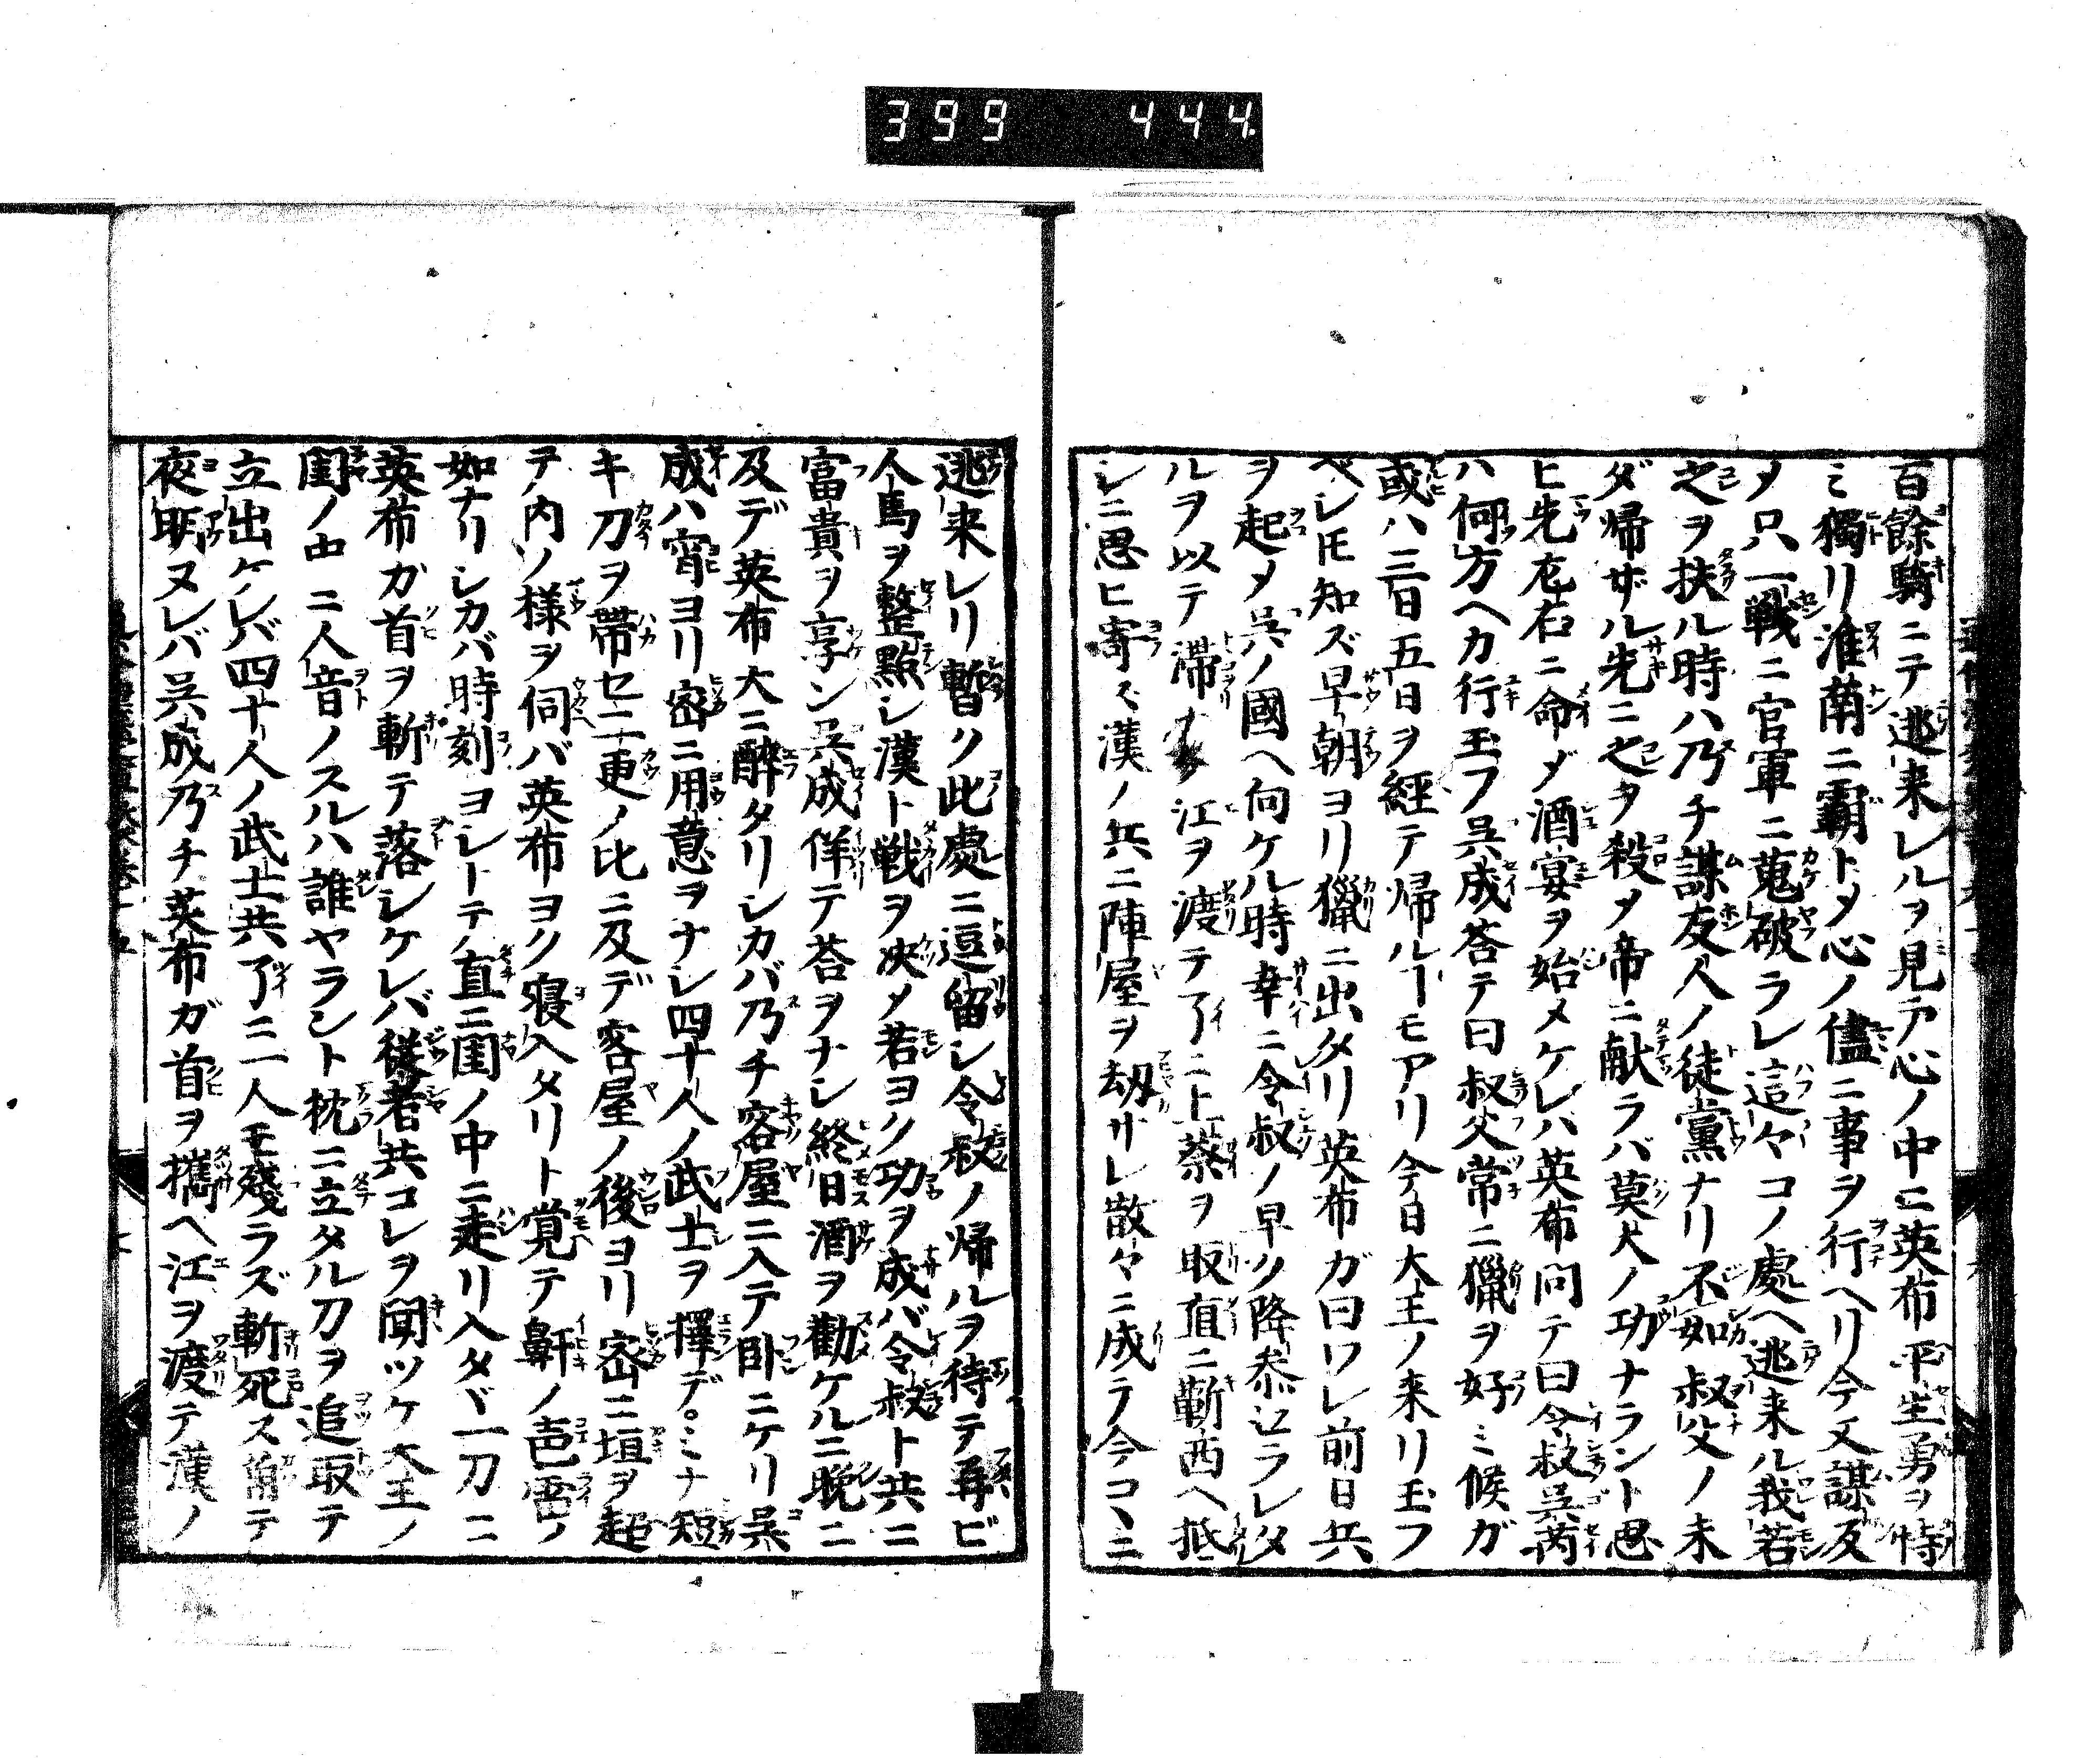 399 444
百餘騎ニテ逃来レルヲ見テ心ノ中ニ英布平生勇ヲ恃
ミ獨リ淮南ニ覇トメ心ノ儘ニ事ヲ行ヘリ今又謀反
メ只一戦ニ官軍ニ蒐破ラレ這々コノ處ヘ逃来ル我若
之ヲ扶ル時ハ乃チ謀反人ノ徒黨ナリ不如叔父ノ未
ダ帰ザル先ニ之ヲ殺メ帝ニ献ラバ莫大ノ功ナラント思
ヒ先左右ニ命メ酒宴ヲ始メケレハ英布問テ曰令叔呉芮
ハ何方ヘカ行玉フ呉成荅テ曰叔父常ニ獵ヲ好ミ候ガ
或ハ三日五日ヲ經テ帰ルヿモアリ今日大王ノ来リ玉フ
ベレ𪜈知ズ早朝ヨリ獵ニ出タリ英布ガ曰ワレ前日兵
ヲ起メ呉ノ國ヘ向ケル時幸ニ令叔ノ早ク降参セラレタ
ルヲ以テ滞ナク江ヲ渡テ了ニ上蔡ヲ取直ニ蘄西ヘ抵
シニ思ヒ寄ズ漢ノ兵ニ陣屋ヲ劫サレ散々ニ成テ今コヽニ
逃来レリ暫ク此處ニ逗留シ令叔ノ帰ルヲ待テ再ビ
人馬ヲ整點シ漢ト戦ヲ决メ若ヨク功ヲ成バ令叔ト共ニ
富貴ヲ享ン呉成佯テ荅ヲナシ終日酒ヲ勸ケルニ晩ニ
及デ英布大ニ醉タリシカバ乃チ客屋ニ入テ臥ニケリ呉
成ハ宵ヨリ密ニ用意ヲナシ四十人ノ武士ヲ擇デミナ短
キ刀ヲ帯セ二更ノ比ニ及デ客屋ノ後ヨリ密ニ垣ヲ超
テ内ノ様ヲ伺バ英布ヨク寝入タリト覚テ鼾ノ声雷ノ
如ナリシカバ時刻ヨシトテ直ニ閨ノ中ニ走リ入タヾ一刀ニ
英布ガ首ヲ斬テ落シケレバ従者共コレヲ聞ツケ大王ノ
閨ノ中ニ人音ノスルハ誰ヤラント枕ニ立タル刀ヲ追取テ
立出ケレバ四十人ノ武士共了ニ一人モ殘ラズ斬死ス角テ
夜明ヌレバ呉成乃チ英布ガ首ヲ攜ヘ江ヲ渡テ漢ノ